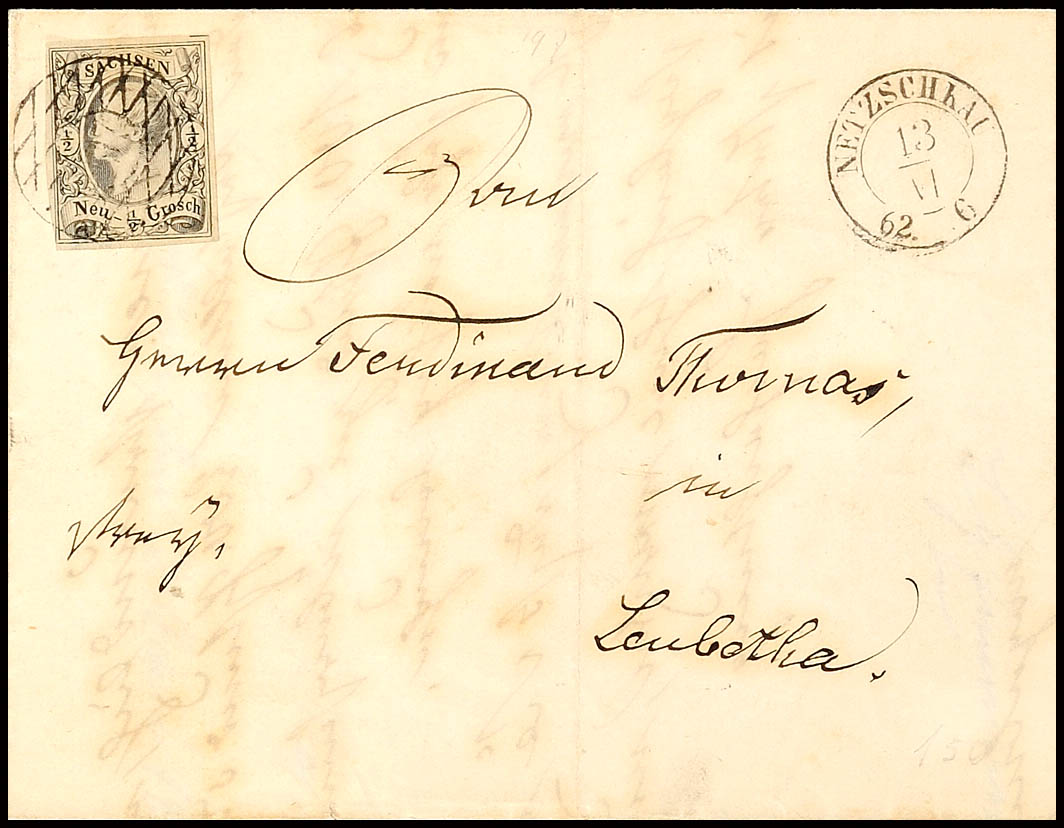 SACHSEN
½ ½
Neu-½ Grosch
NETZSCHKAU
13
VI
62. 6
Herrn Ferdinand Thomas,
in
frey.
Leubetha.
150